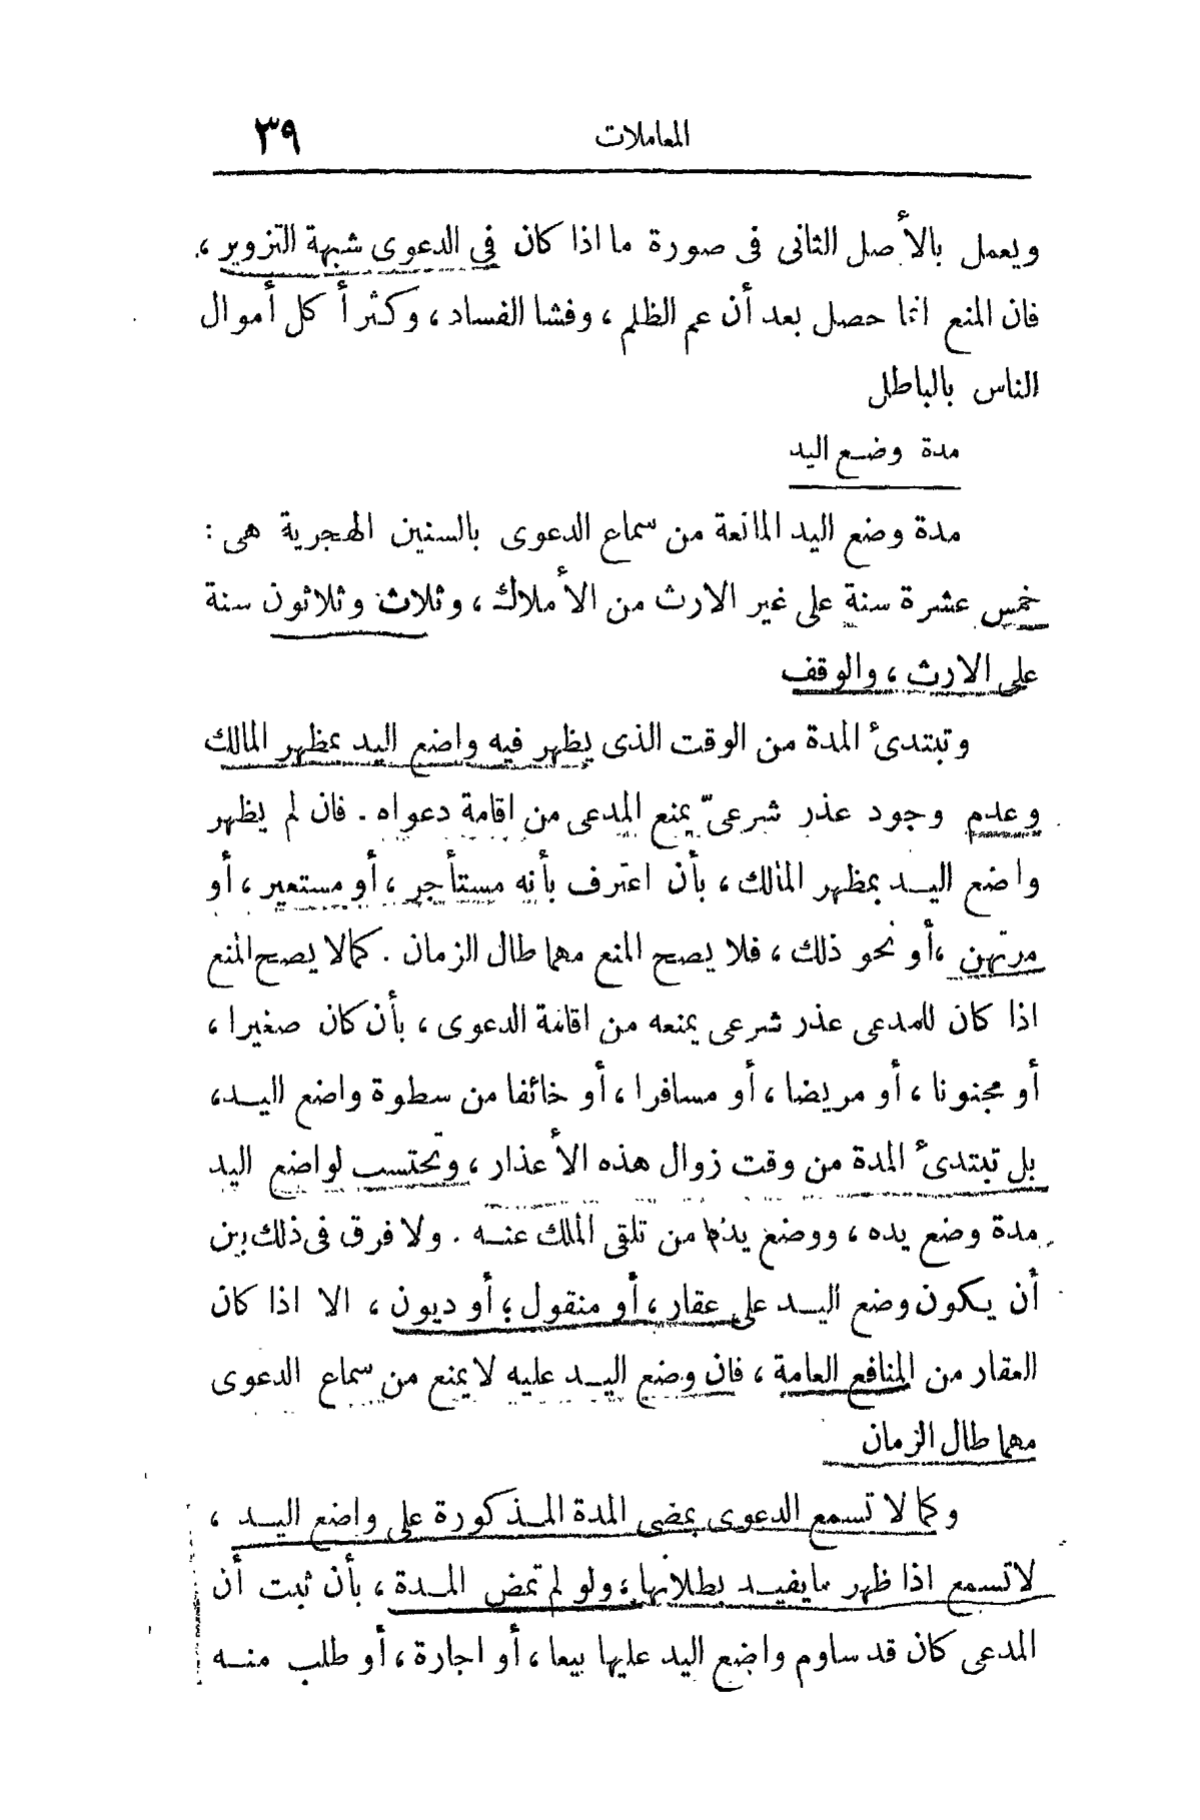 المعاملات ٣٩
ويعمل بالأصل الثانى فى صورة ما اذا كان فى الدعوى شبهة التزوير ،
فان المنع انما حصل بعد أن عم الظلم ، وفشا الفساد ، وكثر أكل أموال
الناس بالباطل
مدة وضع اليد
مدة وضع اليد المانعة من سماع الدعوى بالسنين الهجرية هى :
خمس عشرة سنة على غير الارث من الأملاك ، وثلاث وثلاثون سنة
على الارث ، والوقف
وتبتدئ المدة من الوقت الذى يظهر فيه واضع اليد بمظهر المالك
وعدم وجود عذر شرعىّ يمنع المدعى من اقامة دعواه . فان لم يظهر
واضع اليد بمظهر المالك ، بأن اعترف بأنه مستأجر ، أو مستعير ، أو
مرتهن ، أو نحو ذلك ، فلا يصح المنع مهما طال الزمان . كمالا يصح المنع
اذا كان للمدعى عذر شرعى يمنعه من اقامة الدعوى ، بأن كان صغيرا ،
أو مجنونا ، أو مريضا ، أو مسافرا ، أو خائفا من سطوة واضع اليد ،
بل تبتدئ المدة من وقت زوال هذه الأعذار ، وتحتسب لواضع اليد
مدة وضع يده ، ووضع يد من تلقى الملك عنه . ولا فرق فى ذلك بين
أن يكون وضع اليد على عقار ، أو منقول ، أو ديون ، الا اذا كان
العقار من المنافع العامة ، فان وضع اليد عليه لا يمنع من سماع الدعوى
مهما طال الزمان
وكما لا تسمع الدعوى بمضى المدة المذكورة على واضع اليد ،
لا تسمع اذا ظهر ما يفيد بطلانها ، ولو لم تمض المدة ، بأن ثبت أن
المدعى كان قد ساوم واضع اليد عليها بيعا ، أو اجارة ، أو طلب منه